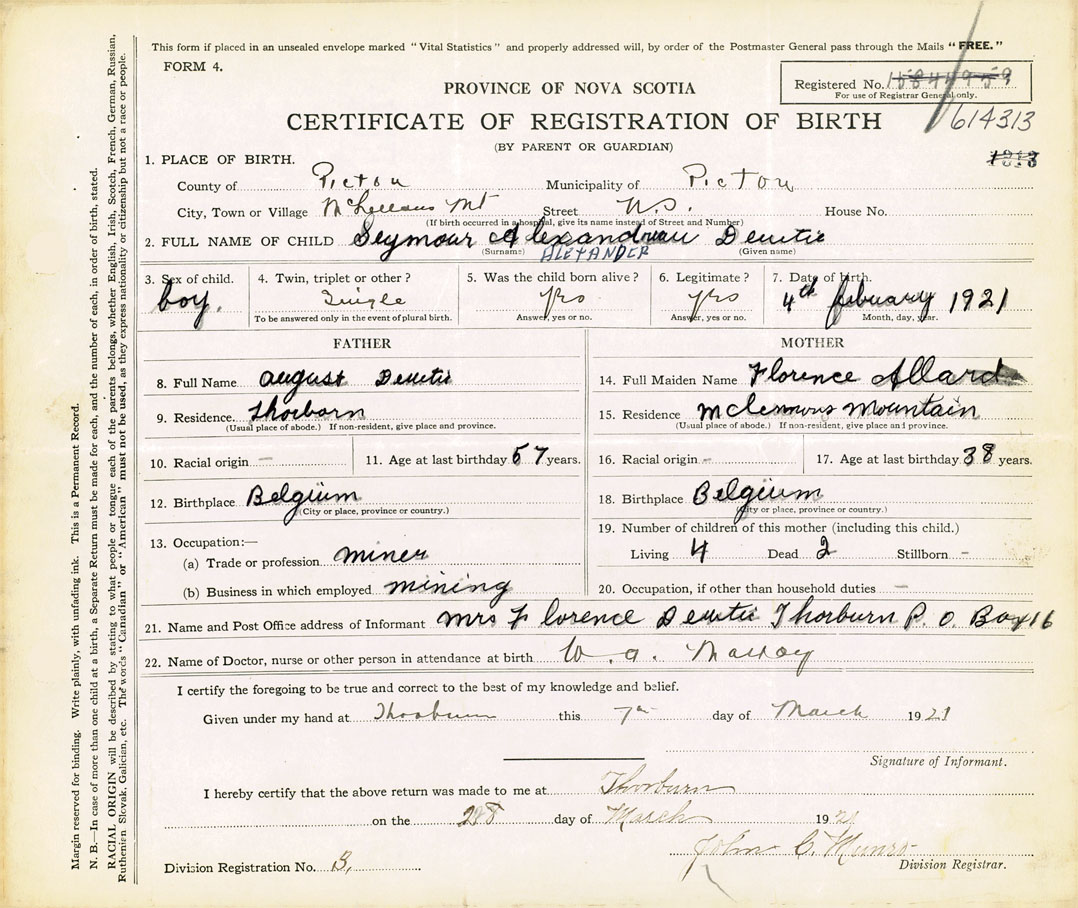 This form if placed in an unsealed envelope marked "Vital Statistics" and properly addressed will, by order of the Postmaster General pass through the Mails "FREE."
FORM 4.
Registered No.
For use of Registrar General only.
614313
PROVINCE OF NOVA SCOTIA
CERTIFICATE OF REGISTRATION OF BIRTH
(BY PARENT OR GUARDIAN)
1. PLACE OF BIRTH.
County of Pictou Municipality of Pictou
City, Town or Village McLellans Mt Street N.S. House No.
(If birth occurred in a hospital, give its name instead of Street and Number)
2. FULL NAME OF CHILD Seymour Alexandreau
(Surname) ALEXANDER (Given name)
3. Sex of child. boy.
4. Twin, triplet or other? Single
To be answered only in the event of plural birth.
5. Was the child born alive? yes
Answer, yes or no.
6. Legitimate? yes
Answer, yes or no.
7. Date of birth. 4th february 1921
Month, day, year.
FATHER
8. Full Name august
9. Residence. Thorborn
(Usual place of abode.) If non-resident, give place and province.
10. Racial origin – 11. Age at last birthday 57 years.
12. Birthplace Belgium
(City or place, province or country.)
13. Occupation:—
(a) Trade or profession miner
(b) Business in which employed mining
MOTHER
14. Full Maiden Name Florence Allard
15. Residence Mountain
(Usual place of abode.) If non-resident, give place and province.
16. Racial origin - 17. Age at last birthday 38 years.
18. Birthplace Belgium
(City or place, province or country.)
19. Number of children of this mother (including this child.)
Living 4 Dead 2 Stillborn -
20. Occupation, if other than household duties –
21. Name and Post Office address of Informant mrs Florence Thorburn P. O. Box 16
22. Name of Doctor, nurse or other person in attendance at birth W. a. Mackay
I certify the foregoing to be true and correct to the best of my knowledge and belief.
Given under my hand at Thorburn this 7th day of March 1921
Signature of Informant.
I hereby certify that the above return was made to me at Thorburn
on the 28 day of March 1921
John C. Munro
Division Registration No. B, Division Registrar.
Margin reserved for binding. Write plainly, with unfading ink. This is a Permanent Record.
N. B.—In case of more than one child at a birth, a Separate Return must be made for each, and the number of each, in order of birth, stated.
RACIAL ORIGIN will be described by stating to what people or tongue each of the parents belongs, whether English, Irish, Scotch, French, German, Russian,
Ruthenian, Slovak, Galician, etc. The words "Canadian" or "American" must not be used, as they express nationality or citizenship but not a race or people.